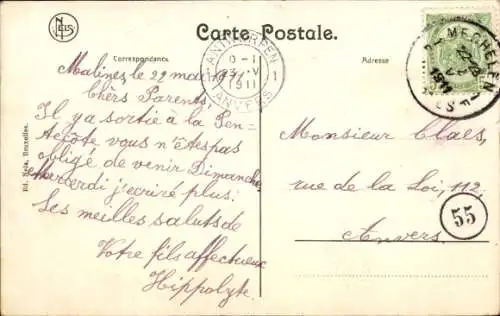 NELS
Carte Postale.
Correspondance
Adresse
ANTWERPEN
1911
ANVERS
MECHELEN
1911
Malines le 22 mai 1911
Chers Parents,
Il y a sortie à la Pen-
tecôte vous n'êtes pas
obligé de venir Dimanche,
Mercredi j'ecriré plus.
Les meilles saluts de
Votre fils affectueux
Hippolyte.
Monsieur Claes,
rue de la Loi, 112,
Anvers.
55
Ed. Nels, Bruxelles.